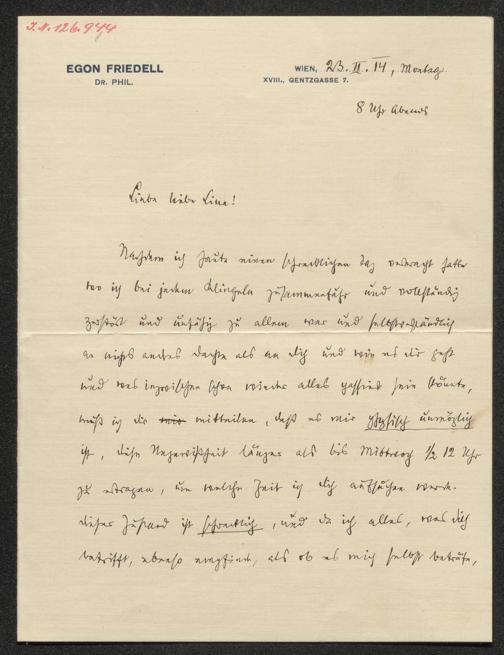 J.N. 126.944
EGON FRIEDELL
DR. PHIL.
WIEN, 23. II. 14, Montag
XVIII., GENTZGASSE 7.
8 Uhr Abends
Liebe liebe Lina!
Nachdem ich heute einen schrecklichen Tag verbracht hatte
wo ich bei jedem Klingeln zusammenfuhr und vollständig
zerstört und unfähig zu allem war und selbstverständlich
an nichts andres dachte als an dich und wie es dir geht
und was inzwischen schon wieder alles passiert sein könnte,
muß ich dir mitteilen, daß es mir physisch unmöglich
ist, diese Ungewißheit länger als bis Mittwoch 1/2 12 Uhr
zu ertragen, um welche Zeit ich dich aufsuchen werde.
Dieser Zustand ist schrecklich, und da ich alles, was dich
betrifft, ebenso empfinde, als ob es mich selbst beträfe,